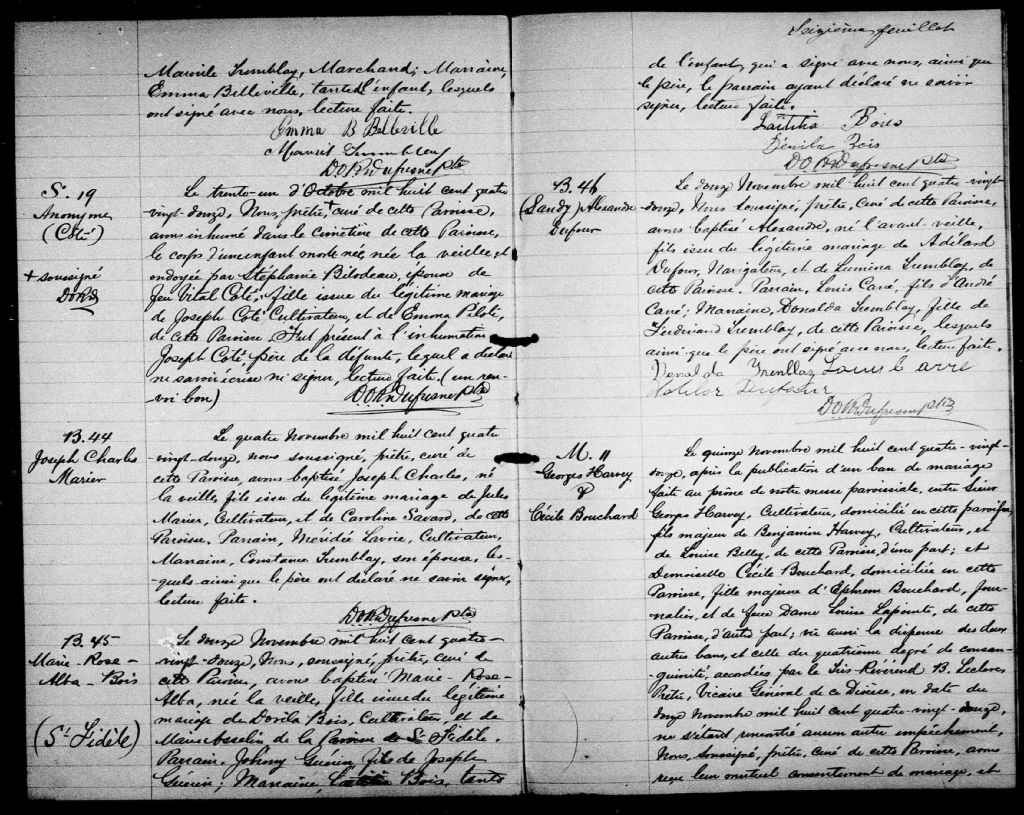 Maurile Tremblay, Marchand; Marraine,
Emma Belleville, tante de l'enfant, lesquels
ont signé avec nous, lecture faite.
Emma B Belleville
D.O.R. Dufresne Ptre
S. 19
Anonyme
(Coté)
+ soussigné
D.O.R.D
Le trente-un d'Octobre mil huit cent quatre
vingt-douze, Nous, prêtre, + curé de cette Paroisse,
avons inhumé dans le cimetière de cette Paroisse,
le corps d'une enfant morte née, née la veille, et
ondoyée par Stéphanie Bilodeau, épouse de
feu Vital Coté, fille issue du légitime mariage
de Joseph Coté Cultivateur, et de Emma Pilote,
de cette Paroisse. Fut présent à l'inhumation
Joseph Coté père de la défunte, lequel a déclaré
ne savoir écrire ni signer, lecture faite. (un ren-
voi bon) D.O.R. Dufresne Ptre
B. 44
Joseph Charles
Marier
Le quatre Novembre mil huit cent quatre
vingt-douze, nous soussigné, prêtre, curé de
cette Paroisse, avons baptisé Joseph Charles, né
la veille, fils issu du légitime mariage de Jules
Marier, Cultivateur, et de Caroline Savard, de cette
Paroisse, Parrain, Méridée Lavoie, Cultivateur,
Marraine, Constance Tremblay, son épouse, les-
quels ainsi que le père ont déclaré ne savoir signer,
lecture faite.
D.O.R. Dufresne Ptre
B. 45
Marie-Rose-
Alba-Bois
(St Fidèle)
Le douze Novembre mil huit cent quatre-
vingt-douze, Nous, soussigné, prêtre, curé de
cette Paroisse, avons baptisé Marie-Rose-
Alba, née la veille, fille issue du légitime
mariage de Dorila Bois, Cultivateur, et de
Marie Asselin de la Paroisse de St Fidèle.
Parrain, Johnny Guerin, fils de Joseph
Guérin; Marraine, Bois, tante
Seizième feuillet
de l'enfant, qui a signé avec nous, ainsi que
le père, le parrain ayant déclaré ne savoir
signer, lecture faite.
Laëtitia Bois
Bois
D.O.R. Dufresne Ptre
B. 46
(Sandy) Alexandre
Dufour
Le douze Novembre mil huit cent quatre-vingt-
douze, Nous soussigné, prêtre, Curé de cette Paroisse,
avons baptisé Alexandre, né l'avant-veille,
fils issu du légitime mariage de Adélard
Dufour, Navigateur, et de Lumina Tremblay, de
cette Paroisse. Parrain, Louis Carré, fils d'André
Carré; Marraine, Donalda Tremblay, fille de
Ferdinand Tremblay, de cette Paroisse, lesquels
ainsi que le père ont signé avec nous, lecture faite.
Louis Carré
D.O.R. Dufresne Ptre
M. 11
Georges Harvey
&
Cécile Bouchard
Le quinze Novembre mil huit cent quatre-vingt-
douze, après la publication d'un ban de mariage
fait au prône de notre messe paroissiale, entre Sieur
Georges Harvey, Cultivateur, domicilié en cette paroisse,
fils majeur de Benjamin Harvey, Cultivateur, et
de Louise Belley, de cette Paroisse, d'une part; et
Demoiselle Cécile Bouchard, domiciliée en cette
Paroisse, fille majeure d'Ephrem Bouchard, Jour-
nalier, et de feue Dame Louise Lapointe, de cette
Paroisse, d'autre part; vu aussi la dispense des deux
autres bans, et celle du quatrième degré de consan-
guinité, accordées par le Très-Révérend B. Leclerc
Prêtre, Vicaire Général de ce Diocèse, en date du
douze Novembre mil huit cent quatre-vingt-douze,
ne s'étant rencontré aucun autre empêchement,
Nous, soussigné, prêtre, curé de cette Paroisse, avons
reçu leur mutuel consentement de mariage, et